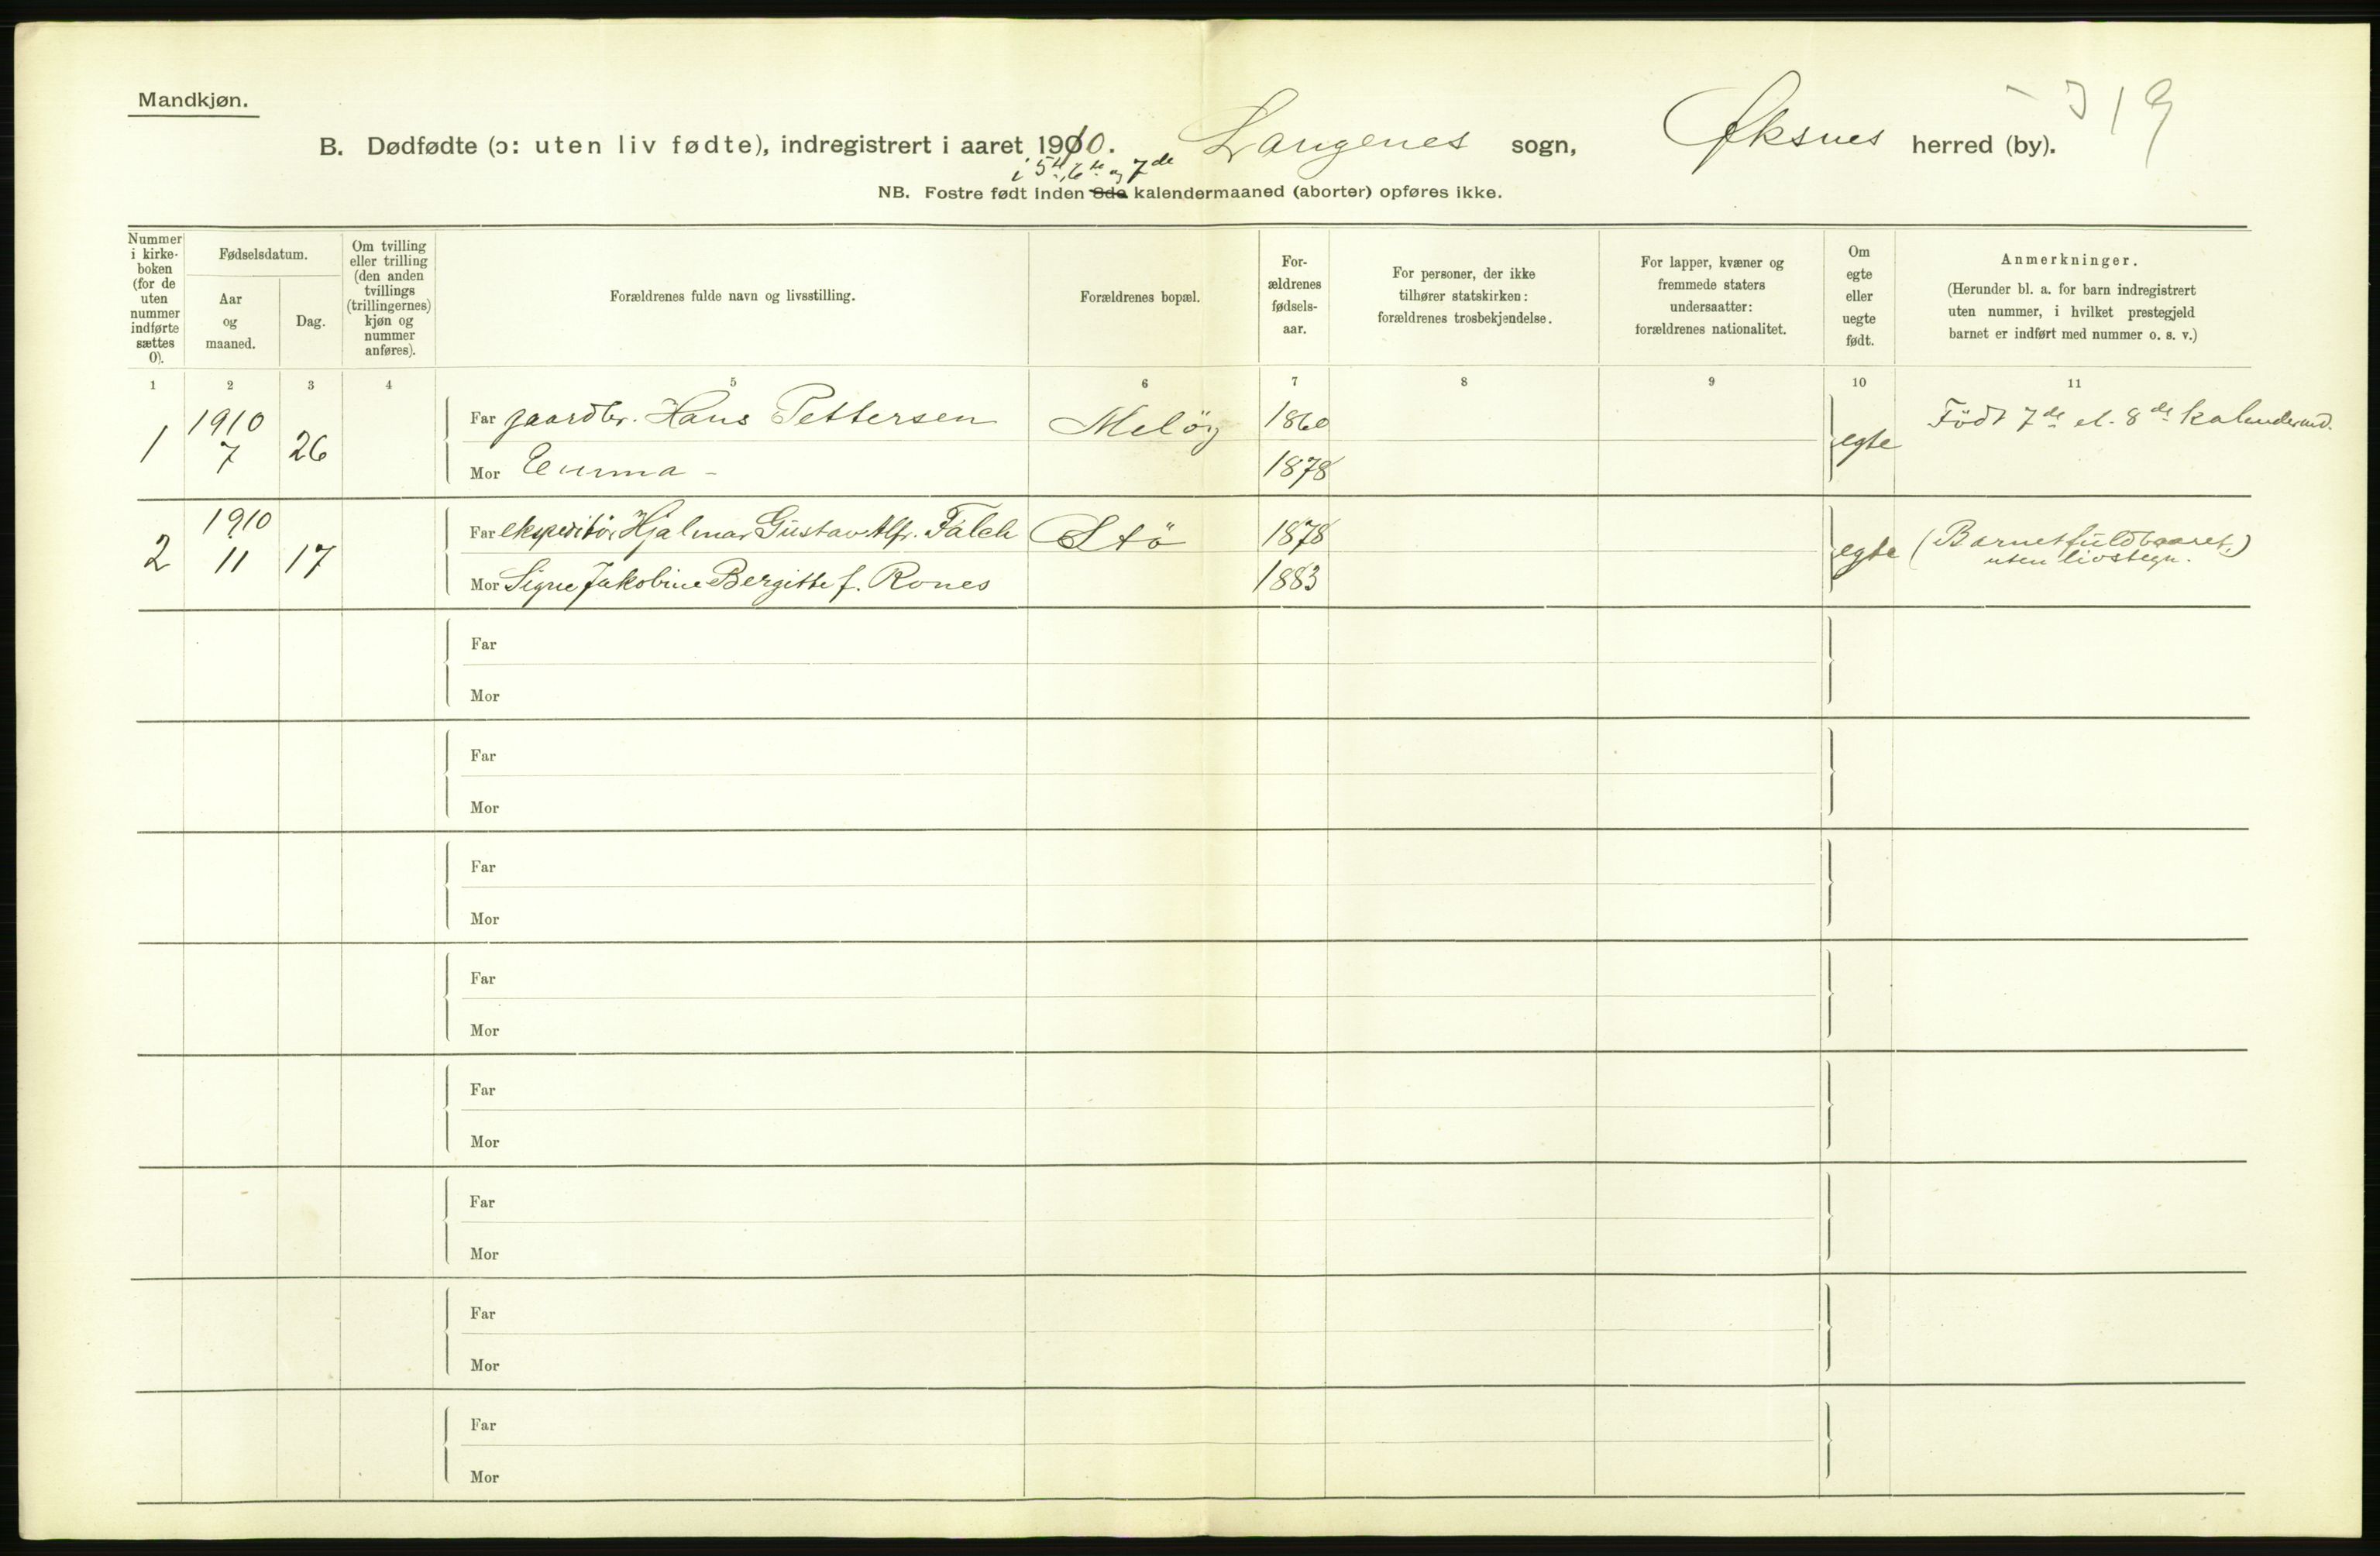 Mandkjøn.
319
B. Dødfødte (ɔ: uten liv fødte), indregistrert i aaret 1910. Langenes sogn, Øksnes herred (by).
i 5te, 6te og 7de
NB. Fostre født inden 8de kalendermaaned (aborter) opføres ikke.
Nummer i kirke-boken (for de uten nummer indførte sættes 0).
Fødselsdatum.
Aar og maaned.
Dag.
Om tvilling eller trilling (den anden tvillings (trillingernes) kjøn og nummer anføres).
Forældrenes fulde navn og livsstilling.
Forældrenes bopæl.
For-ældrenes fødsels-aar.
For personer, der ikke tilhører statskirken: forældrenes trosbekjendelse.
For lapper, kvæner og fremmede staters undersaatter: forældrenes nationalitet.
Om egte eller uegte født.
Anmerkninger.
(Herunder bl. a. for barn indregistrert uten nummer, i hvilket prestegjeld barnet er indført med nummer o. s. v.)
1 2 3 4 5 6 7 8 9 10 11
1 1910 7 26 Far gaardbr. Hans Pettersen Meløy 1860 egte Født 7de el. 8de kalendermd.
Mor Emma - 1878
2 1910 11 17 Far ekspeditør Hjalmar Gustav Alfr. Falch Stö 1878 egte (Barnet fuldbaaret,
uten livstegn.)
Mor Signe Jakobine Bergitte f. Rones 1883
Far
Mor
Far
Mor
Far
Mor
Far
Mor
Far
Mor
Far
Mor
Far
Mor
Far
Mor